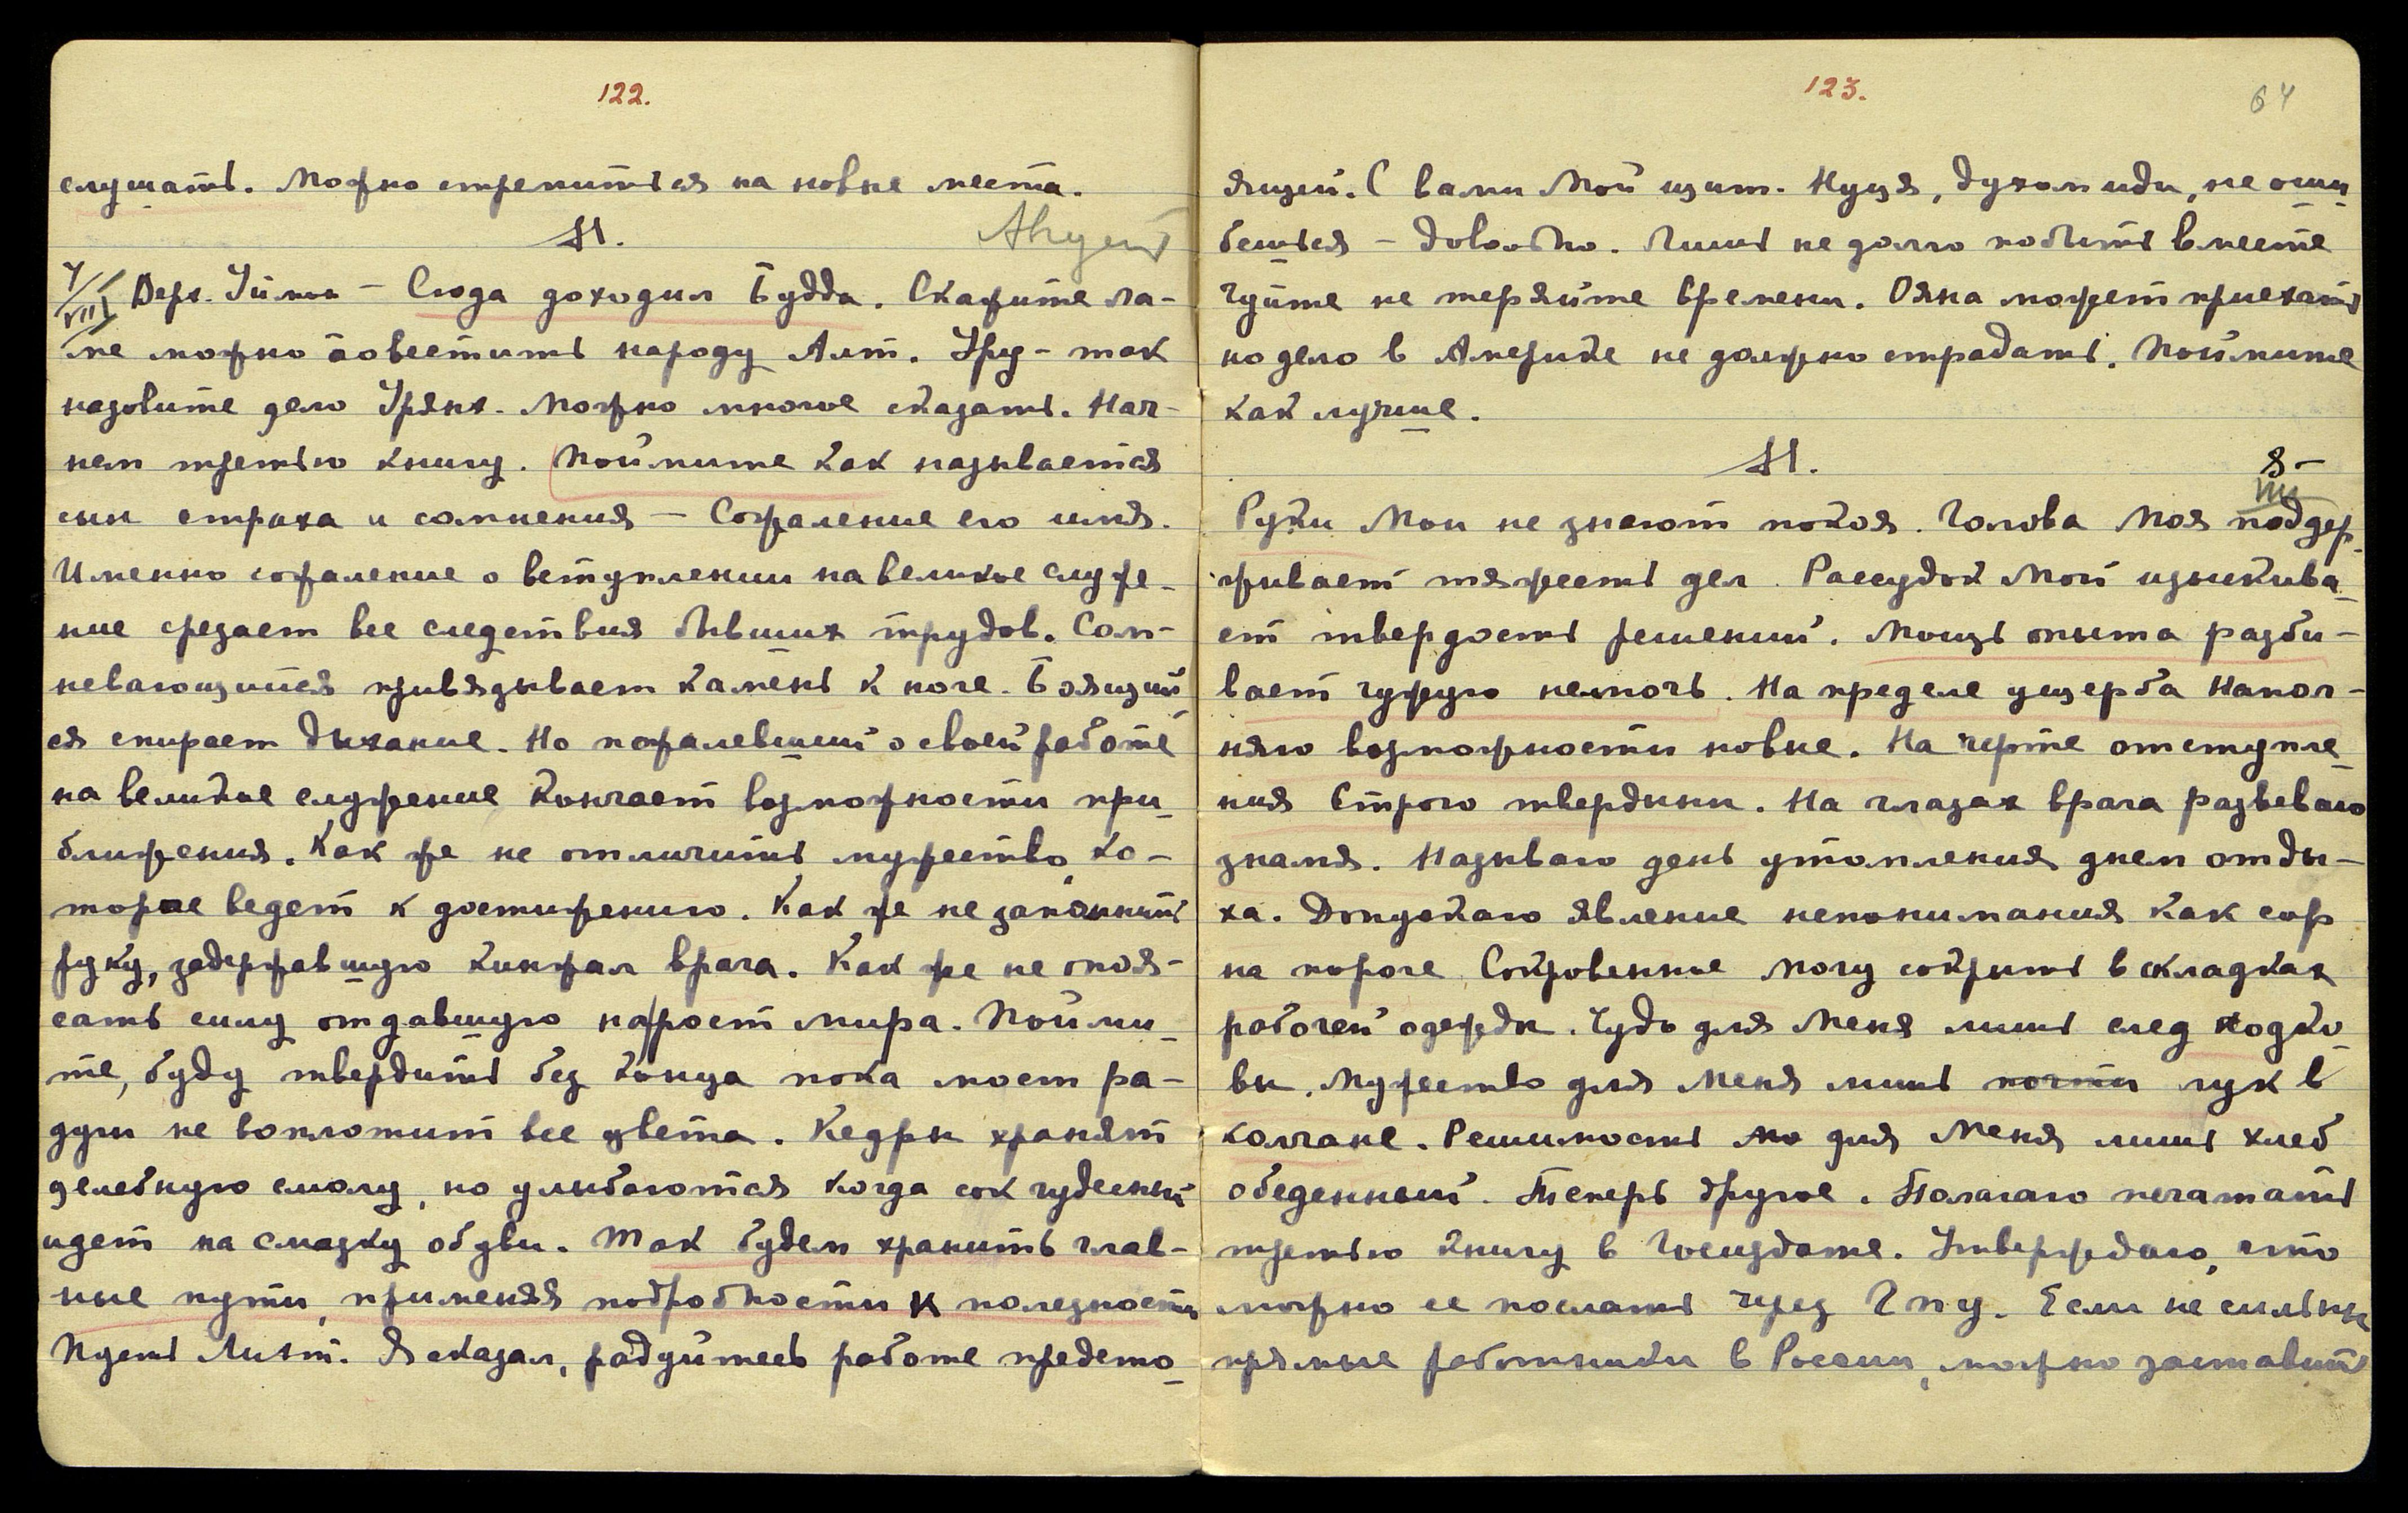 122.
слушать. Можно стремиться на новые места.
М.
Август
7/VIII Верх. Уймон — Сюда доходил Будда. Скажите ла-
ме можно повестить народу Алт. Уру — так
назовите дело Урянх. Можно многое сказать. Нач-
нем третью книгу. Поймите как называется
сын страха и сомнения — Сожаление его имя.
Именно сожаление о вступлении на великое служе-
ние срезает все следствия бывших трудов. Сом-
невающийся привязывает камень к ноге. Боящий
ся спирает дыхание. Но пожалевший о своей работе
на великое служение кончает возможности при-
ближения. Как же не отличить мужество, ко-
торое ведет к достижению. Как же не запомнить
руку, задержавшую кинжал врага. Как же не опоя-
сать силу отдавшую на рост мира. Пойми-
те, буду твердить без конца пока мост ра-
дуги не воплотит все цвета. Кедры хранят
целебную смолу, но улыбаются когда сок чудесный
идет на смазку обуви. Так будем хранить глав-
ные пути, применяя подробности к полезности
Пусть Лихт. Я сказал, радуйтесь работе предсто-
123.
64
ящей. С вами Мой щит. Нуця, духом иди, не оши
бешься — довольно. Лишь не долго побыть вместе
Чуйте не теряйте времени. Ояна может приехать
но дело в Америке не должно страдать. Поймите
как лучше.
М.
8-VIII
Руки Мои не знают покоя. Голова Моя поддер-
живает тяжесть дел. Рассудок Мой изыскива-
ет твердость решений. Мощь опыта разби-
вает чужую немочь. На пределе ущерба напол-
няю возможности новые. На черте отступле-
ния строю твердыни. На глазах врага развеваю
знамя. Называю день утомления днем отды-
ха. Допускаю явление непонимания как сор
на пороге Сокровенное могу сокрыть в складках
рабочей одежды. Чудо для Меня лишь след подко-
вы. Мужество для Меня лишь почти лук в
колчане. Решимость мо для Меня лишь хлеб
обеденный. Теперь другое. Полагаю печатать
третью книгу в Госиздате. Утверждаю, что
можно ее послать через Гпу. Если не сильны
прямые работники в России, можно заставить